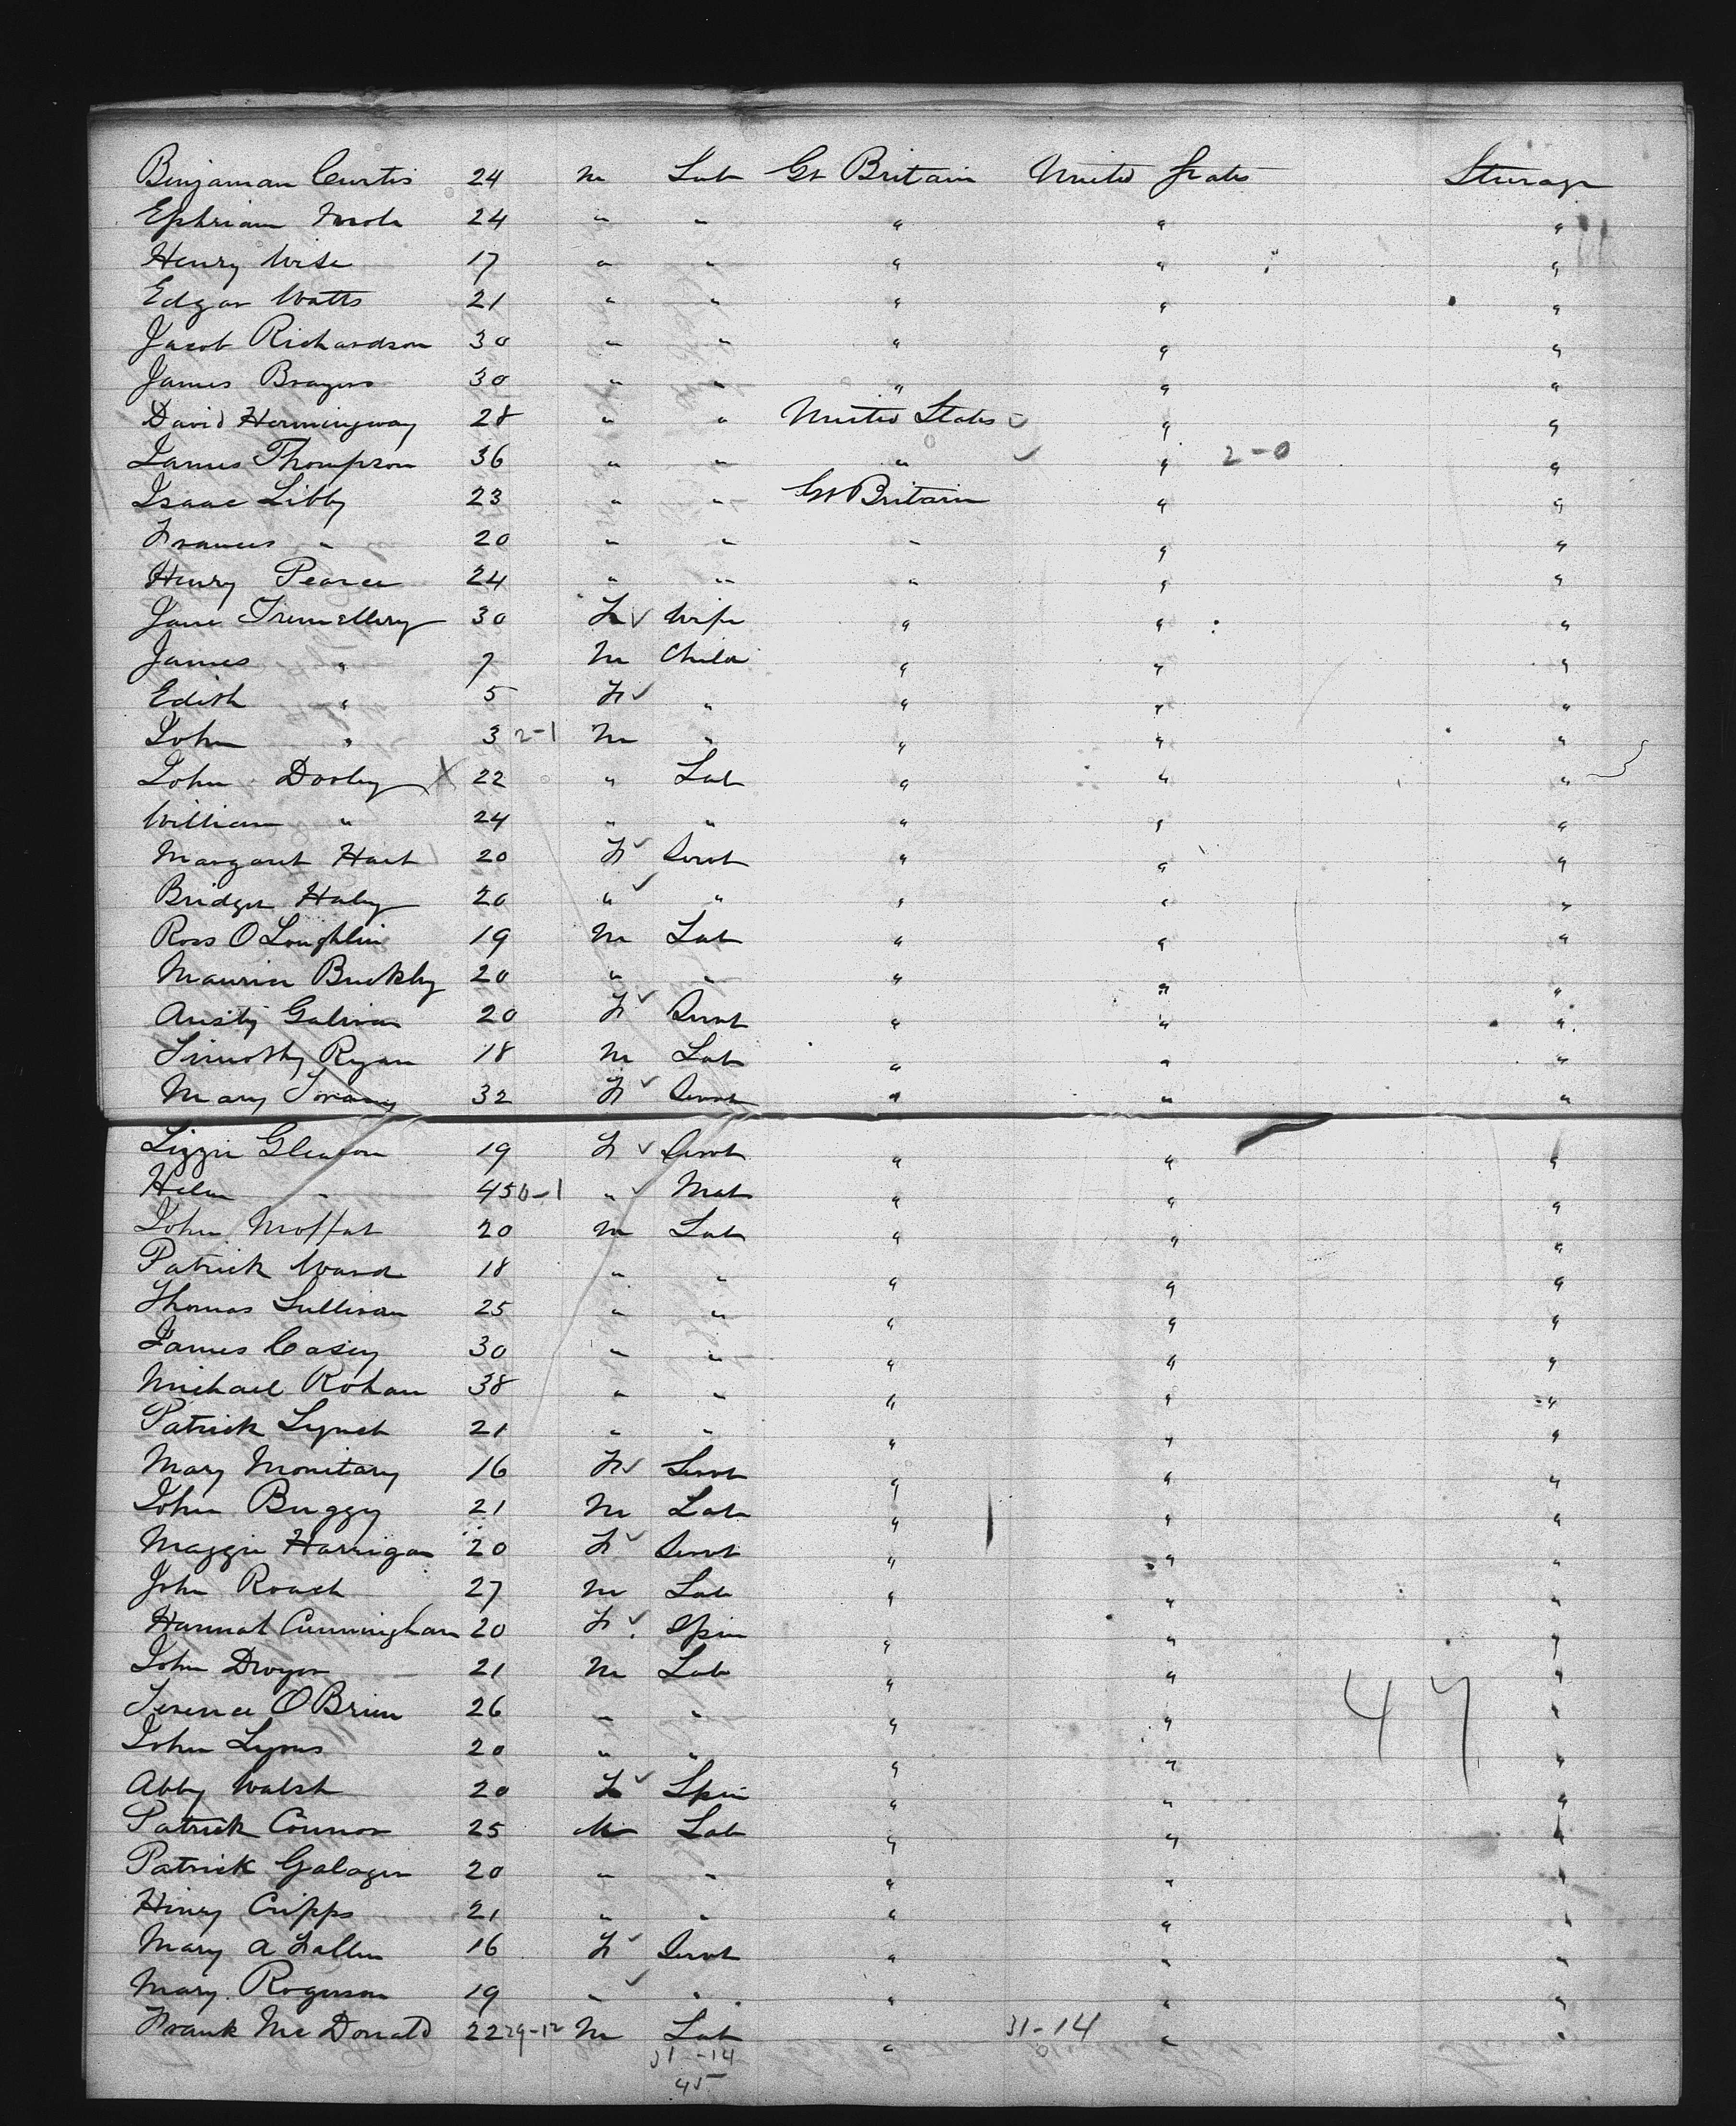 Binjaman Curtis 24 m Lab Gt Britain United States Sterage
Ephriam 24 " " " " "
Henry Wise 17 " " " " "
Edgar Watts 21 " " " " "
Jacob Richardson 30 " " " " "
James Brayers 30 " " " " "
David Hermingway 28 " " United States ✓ " "
James Thompson 36 " " " ✓ " 2-0 "
Isaac Libby 23 " " Gt Britain " "
Frances " 20 " " " " "
Henry Pearce 24 " " " " "
Jane Tremellery 30 F ✓ Wife " " "
James " 7 M Child " " "
Edith " 5 F ✓ " " " "
John " 3 2-1 M " " " "
John Dooley X 22 " Lab " " "
William " 24 " " " " "
Margaret Hart 20 F ✓ Servt " " "
Bridget Haley 20 " ✓ " " " "
Ross O Loughlin 19 M Lab " " "
Maurice Buckley 20 " " " " "
Galivan 20 F ✓ Servt " " "
Timothy Ryan 18 M Lab " " "
Mary 32 F ✓ Servt " " "
Lizzie Gleason 19 F ✓ Servt " " "
Helen " 45 6-1 " ✓ Mat " " "
John Moffat 20 M Lab " " "
Patrick Ward 18 " " " " "
Thomas Sullivan 25 " " " " "
James Casey 30 " " " " "
Michael Rohan 38 " " " " "
Patrick Lynch 21 " " " " "
Mary Monitary 16 F ✓ Servt " " "
John Buggy 21 M Lab " " "
Maggie Harrigan 20 F ✓ Servt " " "
John Roach 27 M Lab " " "
Hannah Cunningham 20 F ✓ Spin " " "
John Dwyer 21 M Lab " " "
Terence O Brien 26 " " " " " 47
John Lyons 20 " " " " "
Abby Walsh 20 F ✓ Spin " " "
Patrick Connor 25 M Lab " " "
Patrick Galager 20 " " " " "
Hinry Cripps 21 " " " " "
Mary A Fallen 16 F ✓ Servt " " "
Mary Rogerson 19 " ✓ " " " "
Frank Mc Donald 22 29-12 M Lab " 31-14 " "
31-14
45